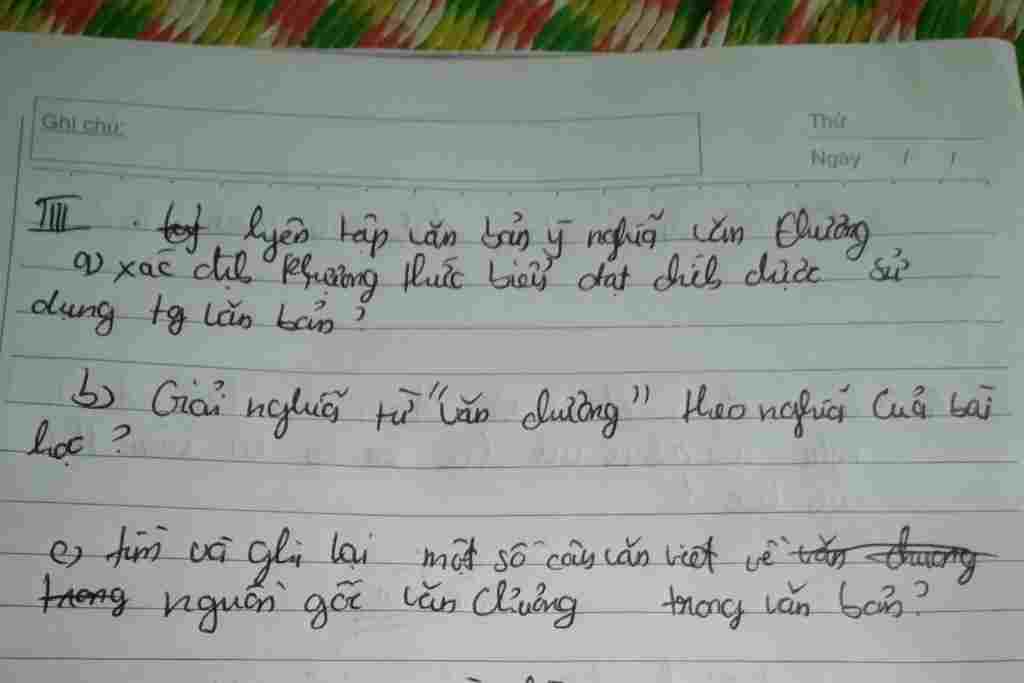 Ghi chú:
Thứ
Ngày / /
III. lyện tập văn bản ý nghĩa văn chương
a) xác định phương thức biểu đạt chính được sử
dụng tg văn bản?
b) Giải nghĩa từ "văn chương" theo nghĩa của bài
học?
c) tìm và ghi lại một số câu văn viết về văn chương
trong nguồn gốc văn chương trong văn bản?